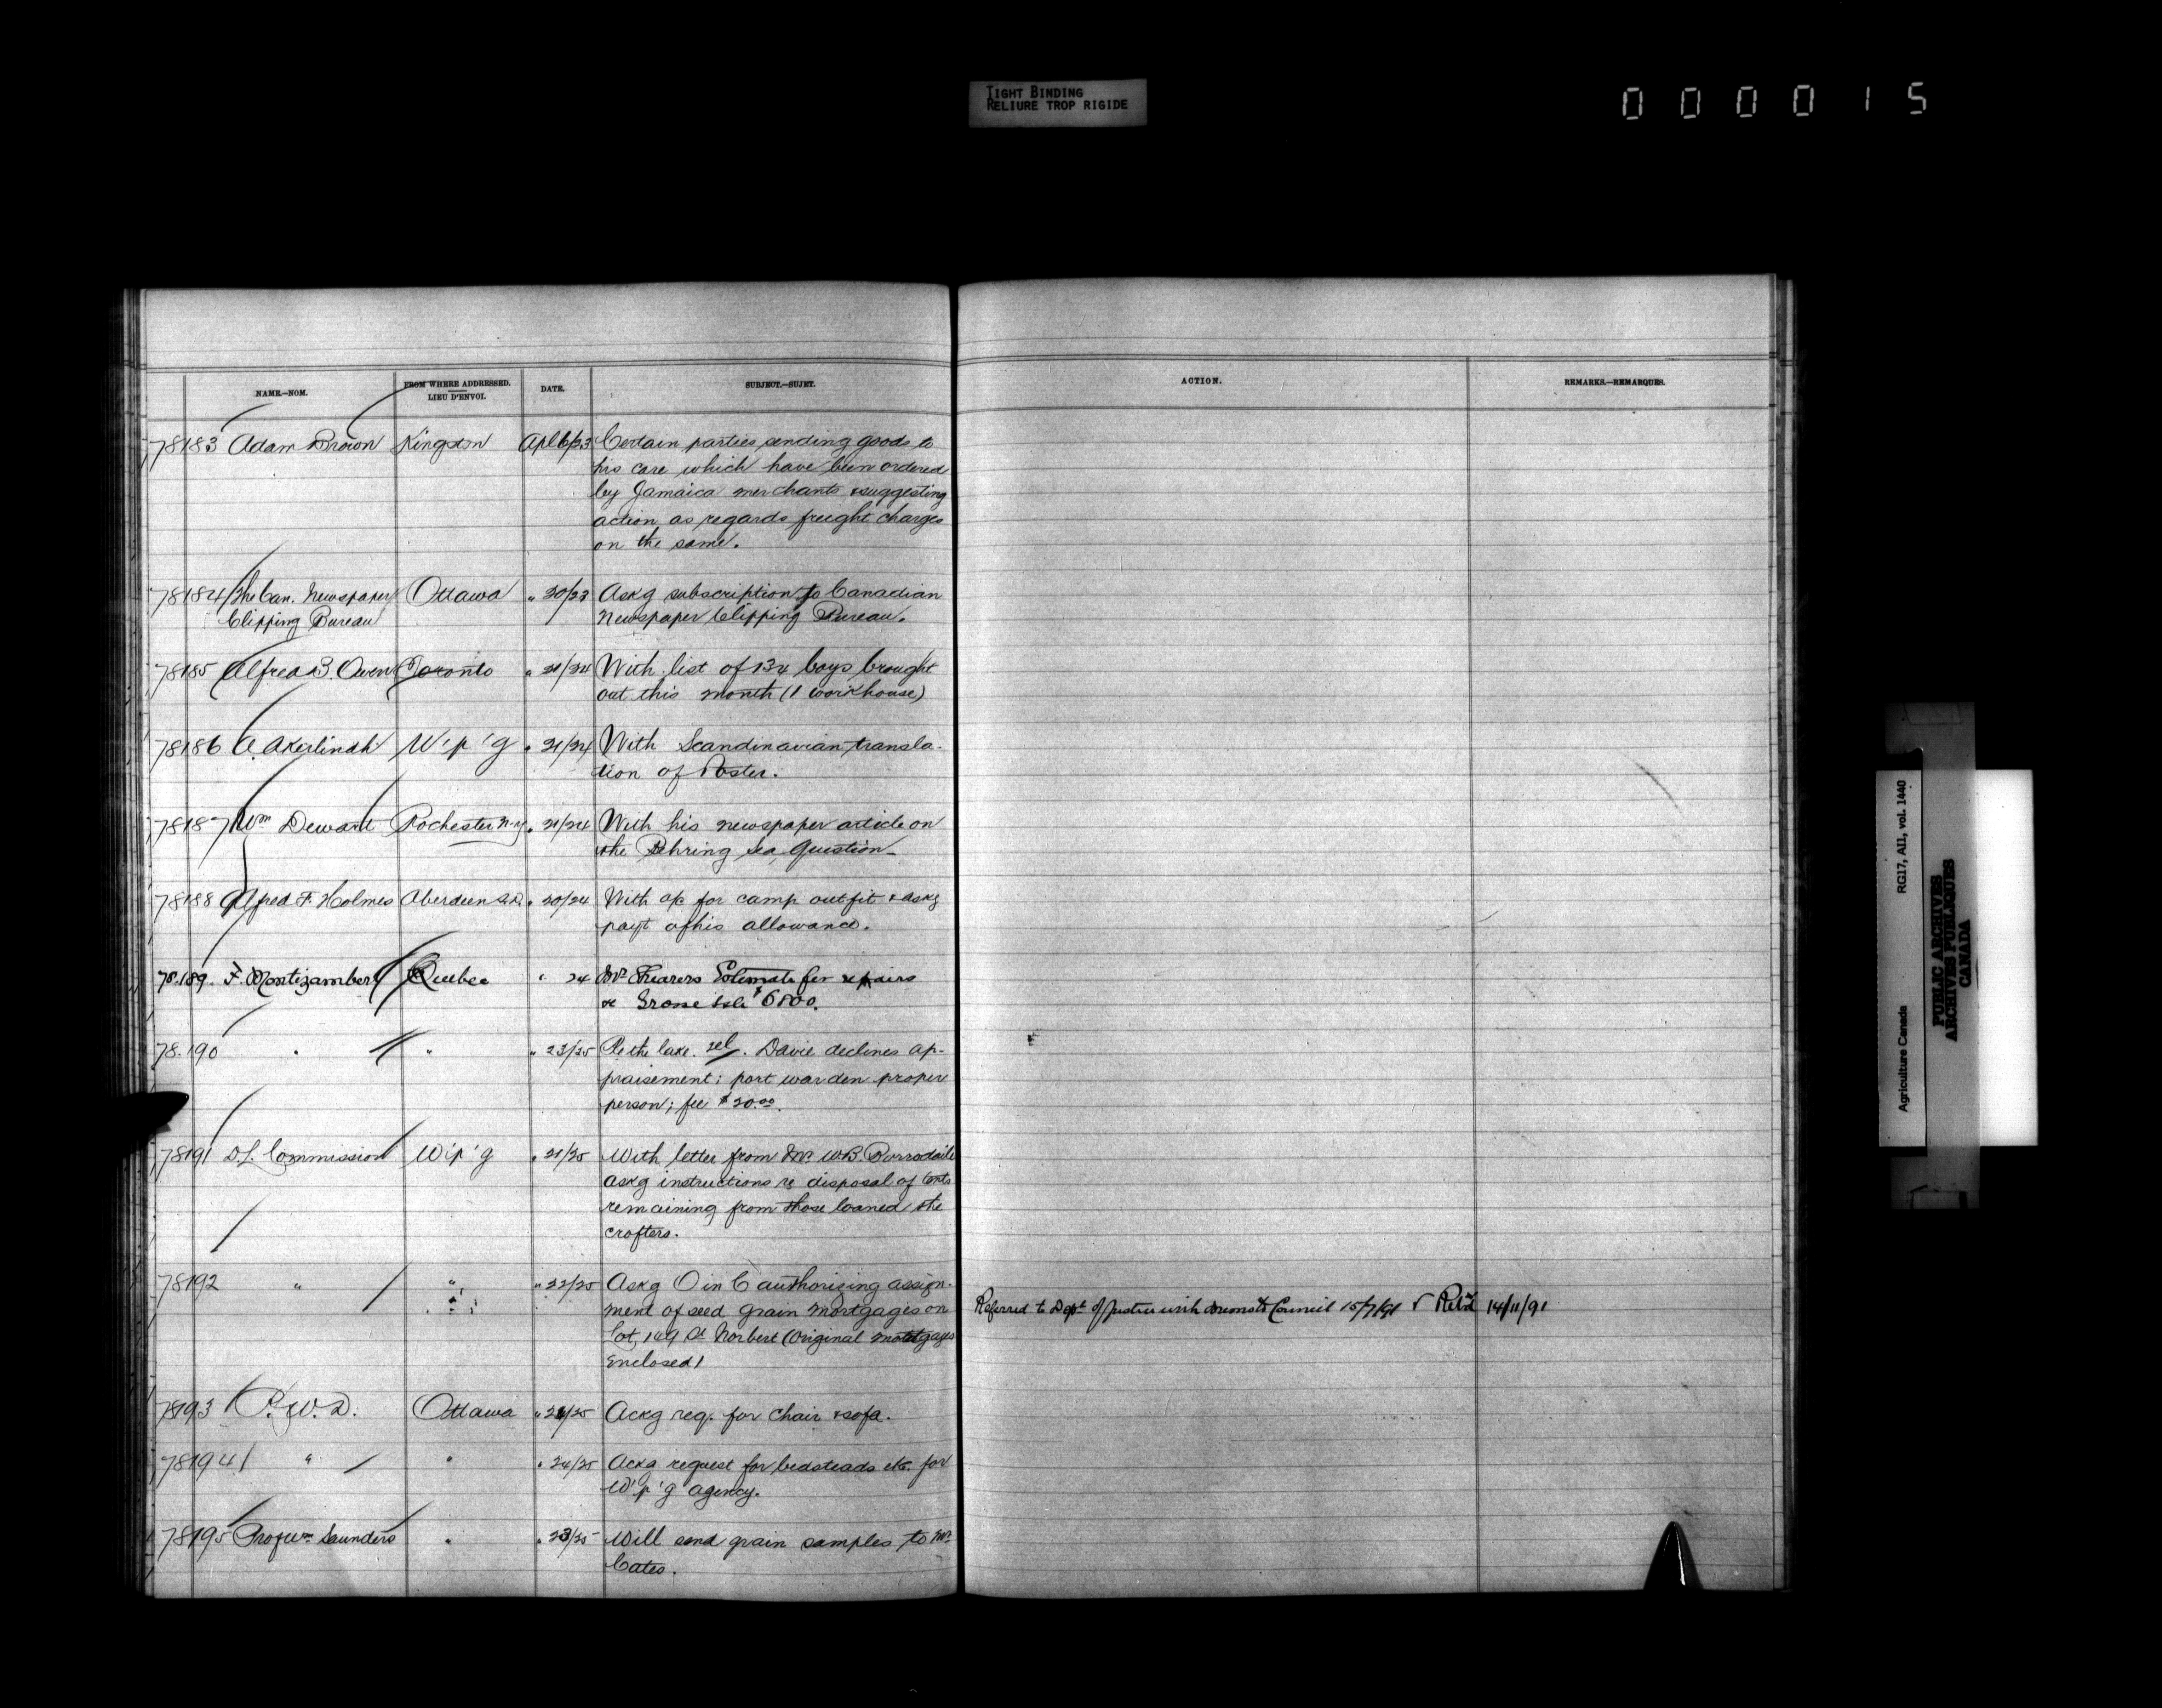 TIGHT BINDING
RELIURE TROP RIGIDE
000015
NAME.—NOM.
FROM WHERE ADDRESSED.
LIEU D'ENVOI.
DATE.
SUBJECT.—SUJET.
ACTION.
REMARKS.—REMARQUES.
78183 Adam Brown Kingston Apl 6/23 Certain parties sending goods to
his care which have been ordered
by Jamaica merchants & suggesting
action as regards freight charges
on the same.
78184 The Can. Newspaper Ottawa " 20/23 Askg subscription to Canadian
Clipping Bureau Newspaper Clipping Bureau.
78185 Alfred B. Owen Toronto " 21/24 With list of 134 boys brought
out this month (1 workhouse)
78186 A. Akerlindh W'p'g " 21/24 With Scandinavian transla-
tion of Poster.
78187 Wm Dewart Rochester N.Y. " 21/24 With his newspaper article on
the Behring Sea Question
78188 Alfred F. Holmes Aberdeen S.D. " 20/24 With a/c for camp outfit & askg
payt of his allowance.
78.189. F. Montizambert Quebec " 24 Mr Shearers Estimate for repairs
Grosse Isle $6800.
78.190 " " " 23/25 Re the late. Davie declines ap-
praisement; port warden proper
person; fee $20.00.
78191 D.L. Commission W'p'g " 21/25 With letter from Mr. W.B. Borrodaile
askg instructions re disposal of tents
remaining from those loaned the
crofters.
78192 " " " 22/25 Askg O in C authorizing assign-
ment of seed grain mortgages on
Lot 149 St Norbert (Original mortgages
Enclosed)
Referred to Dept of Justice with memo to Council 15/7/91 Retd 14/11/91
78193 P.W.D. Ottawa " 24/25 Ackg req. for chair & sofa.
78194 " " " 24/25 Ackg request for bedsteads etc. for
W'p'g agency.
78195 Prof Wm Saunders " " 23/25 Will send grain samples to Mr.
Cates.
Agriculture Canada RG17, AII, vol. 1440
PUBLIC ARCHIVES
ARCHIVES PUBLIQUES
CANADA